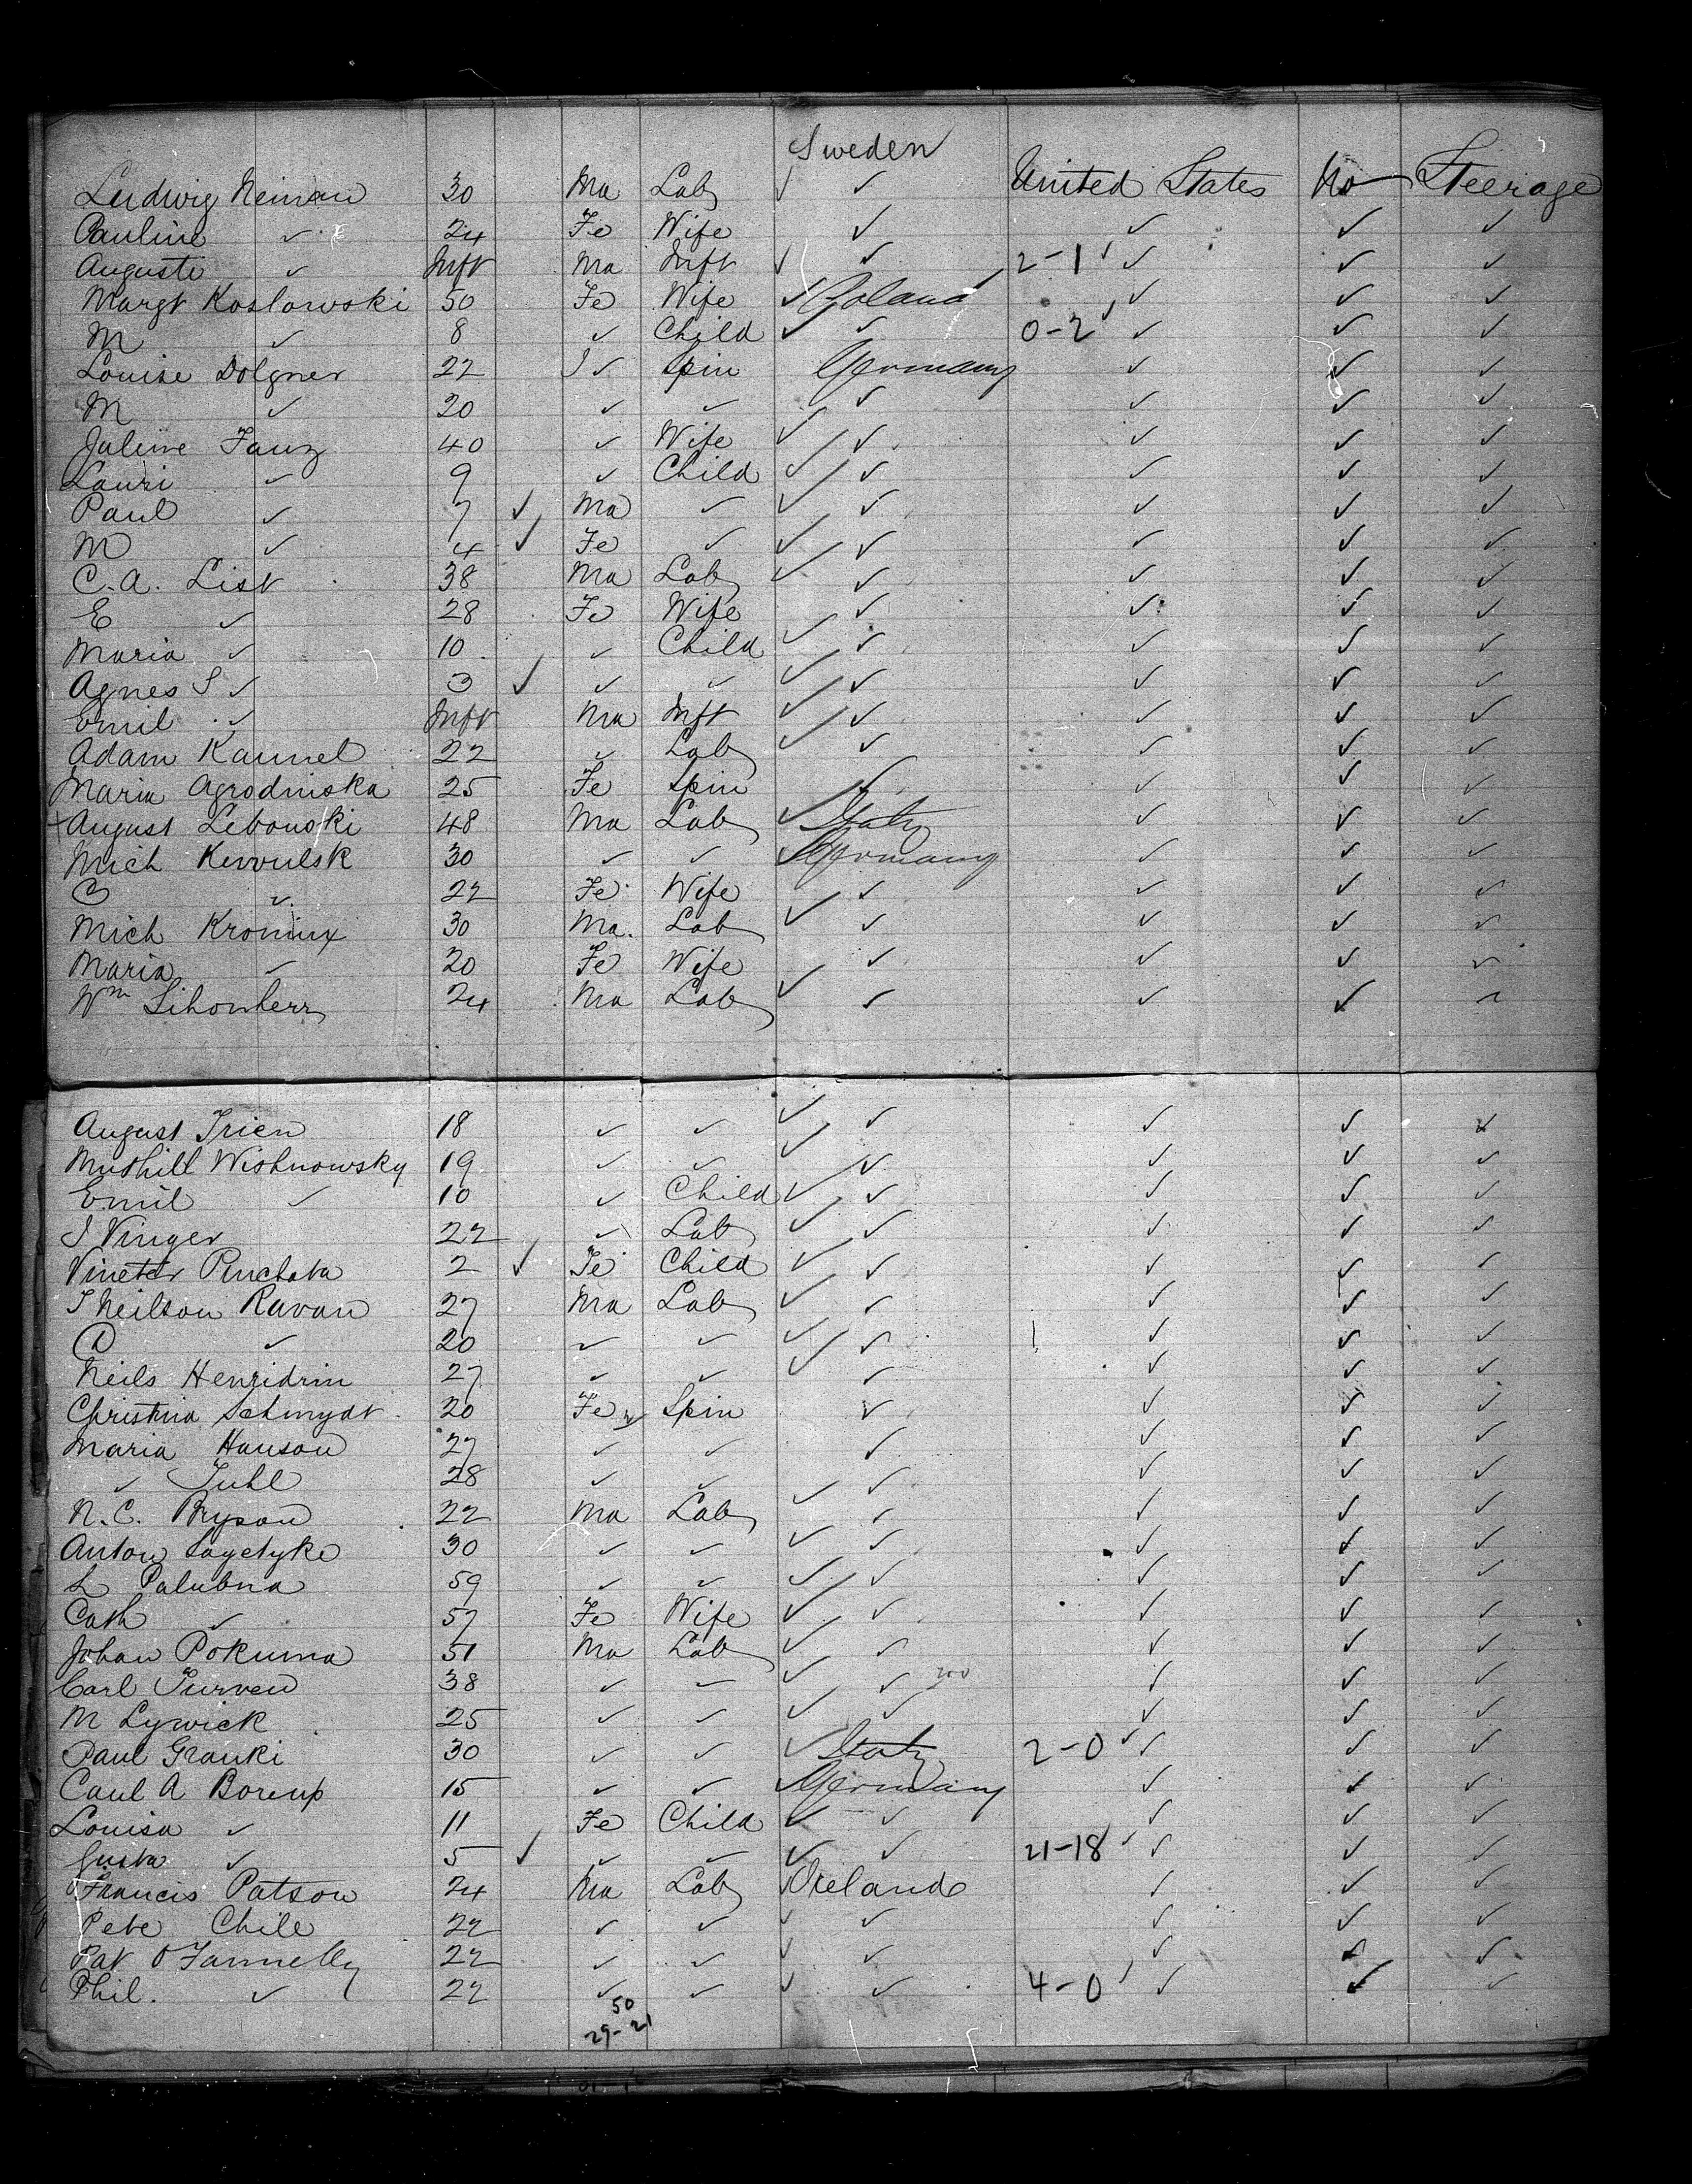 Sweden
Ludwig Neiman 30 Ma Lab ✓ ✓ United States No Steerage
Pauline ✓ 24 Fe Wife ✓ ✓ ✓ ✓
Auguste ✓ Inft Ma Inft ✓ ✓ 2-1 ✓ ✓ ✓ ✓
Margt Koslowski 50 Fe Wife ✓ Poland ✓ ✓ ✓
M ✓ 8 ✓ Child ✓ ✓ 0-2 ✓ ✓ ✓ ✓
Louise Dolgner 22 ✓ Spin Germany ✓ ✓ ✓
M ✓ 20 ✓ ✓ ✓ ✓ ✓ ✓
Juline Fauz 40 ✓ Wife ✓ ✓ ✓ ✓ ✓
Lauri ✓ 9 ✓ Child ✓ ✓ ✓ ✓ ✓
Paul ✓ 7 ✓ Ma ✓ ✓ ✓ ✓ ✓ ✓
M ✓ 4 ✓ Fe ✓ ✓ ✓ ✓ ✓ ✓
C. A. List 38 Ma Lab ✓ ✓ ✓ ✓ ✓
E ✓ 28 Fe Wife ✓ ✓ ✓ ✓
Maria ✓ 10 ✓ Child ✓ ✓ ✓ ✓ ✓
Agnes S ✓ 3 ✓ ✓ ✓ ✓ ✓ ✓ ✓ ✓
Emil ✓ Inft Ma Inft ✓ ✓ ✓ ✓ ✓
Adam Kaunel 22 ✓ Lab ✓ ✓ ✓ ✓ ✓
Maria Agrodniska 25 Fe Spin ✓ ✓ ✓ ✓
August Lebouski 48 Ma Lab ✓ Italy ✓ ✓ ✓
Mich Kervulsk 30 ✓ ✓ ✓ Germany ✓ ✓ ✓
C ✓ 22 Fe Wife ✓ ✓ ✓ ✓
Mich Kroninx 30 Ma. Lab ✓ ✓ ✓ ✓ ✓
Maria ✓ 20 Fe Wife ✓ ✓ ✓ ✓
Wm Sihonherr 24 Ma Lab ✓ ✓ ✓ ✓ ✓
August Trien 18 ✓ ✓ ✓ ✓ ✓ ✓ ✓
Muthill Wishnowsky 19 ✓ ✓ ✓ ✓ ✓ ✓ ✓
Emil ✓ 10 ✓ Child ✓ ✓ ✓ ✓ ✓
J Vinger 22 ✓ Lab ✓ ✓ ✓ ✓ ✓
Vineter Pinchata 2 ✓ Fe Child ✓ ✓ ✓ ✓ ✓
J Neilson Ravan 27 Ma Lab ✓ ✓ ✓ ✓ ✓
A ✓ 20 ✓ ✓ ✓ ✓ ✓ ✓ ✓
Neils Henridrin 27 ✓ ✓ ✓ ✓ ✓ ✓ ✓
Christina Schmydt 20 Fe Spin ✓ ✓ ✓ ✓
Maria Hanson 27 ✓ ✓ ✓ ✓ ✓ ✓
✓ Juhl 28 ✓ ✓ ✓ ✓ ✓ ✓
N. C. Bryson 22 Ma Lab ✓ ✓ ✓ ✓ ✓
Anton Sayetyke 30 ✓ ✓ ✓ ✓ ✓ ✓ ✓
L Palubna 59 ✓ ✓ ✓ ✓ ✓ ✓ ✓
Cath ✓ 57 Fe Wife ✓ ✓ ✓ ✓ ✓
Johan Pokuma 51 Ma Lab ✓ ✓ ✓ ✓ ✓
Carl Turven 38 ✓ ✓ ✓ ✓ ✓ ✓ ✓
M Lywick 25 ✓ ✓ ✓ ✓ ✓ ✓ ✓
Paul Granki 30 ✓ ✓ ✓ Italy 2-0 ✓ ✓ ✓ ✓
Caul A Borcup 15 ✓ ✓ ✓ Germany ✓ ✓ ✓
Louisa ✓ 11 Fe Child ✓ ✓ ✓ ✓ ✓
Gusta ✓ 5 ✓ ✓ ✓ ✓ ✓ 21-18 ✓ ✓ ✓ ✓
Francis Patson 24 Ma Lab ✓ Ireland ✓ ✓ ✓
Pete Chile 22 ✓ ✓ ✓ ✓ ✓ ✓ ✓
Pat O Fannelly 22 ✓ ✓ ✓ ✓ ✓ ✓ ✓
Phil. ✓ 22 ✓ ✓ ✓ ✓ 4-0 ✓ ✓ ✓ ✓
50
29-21